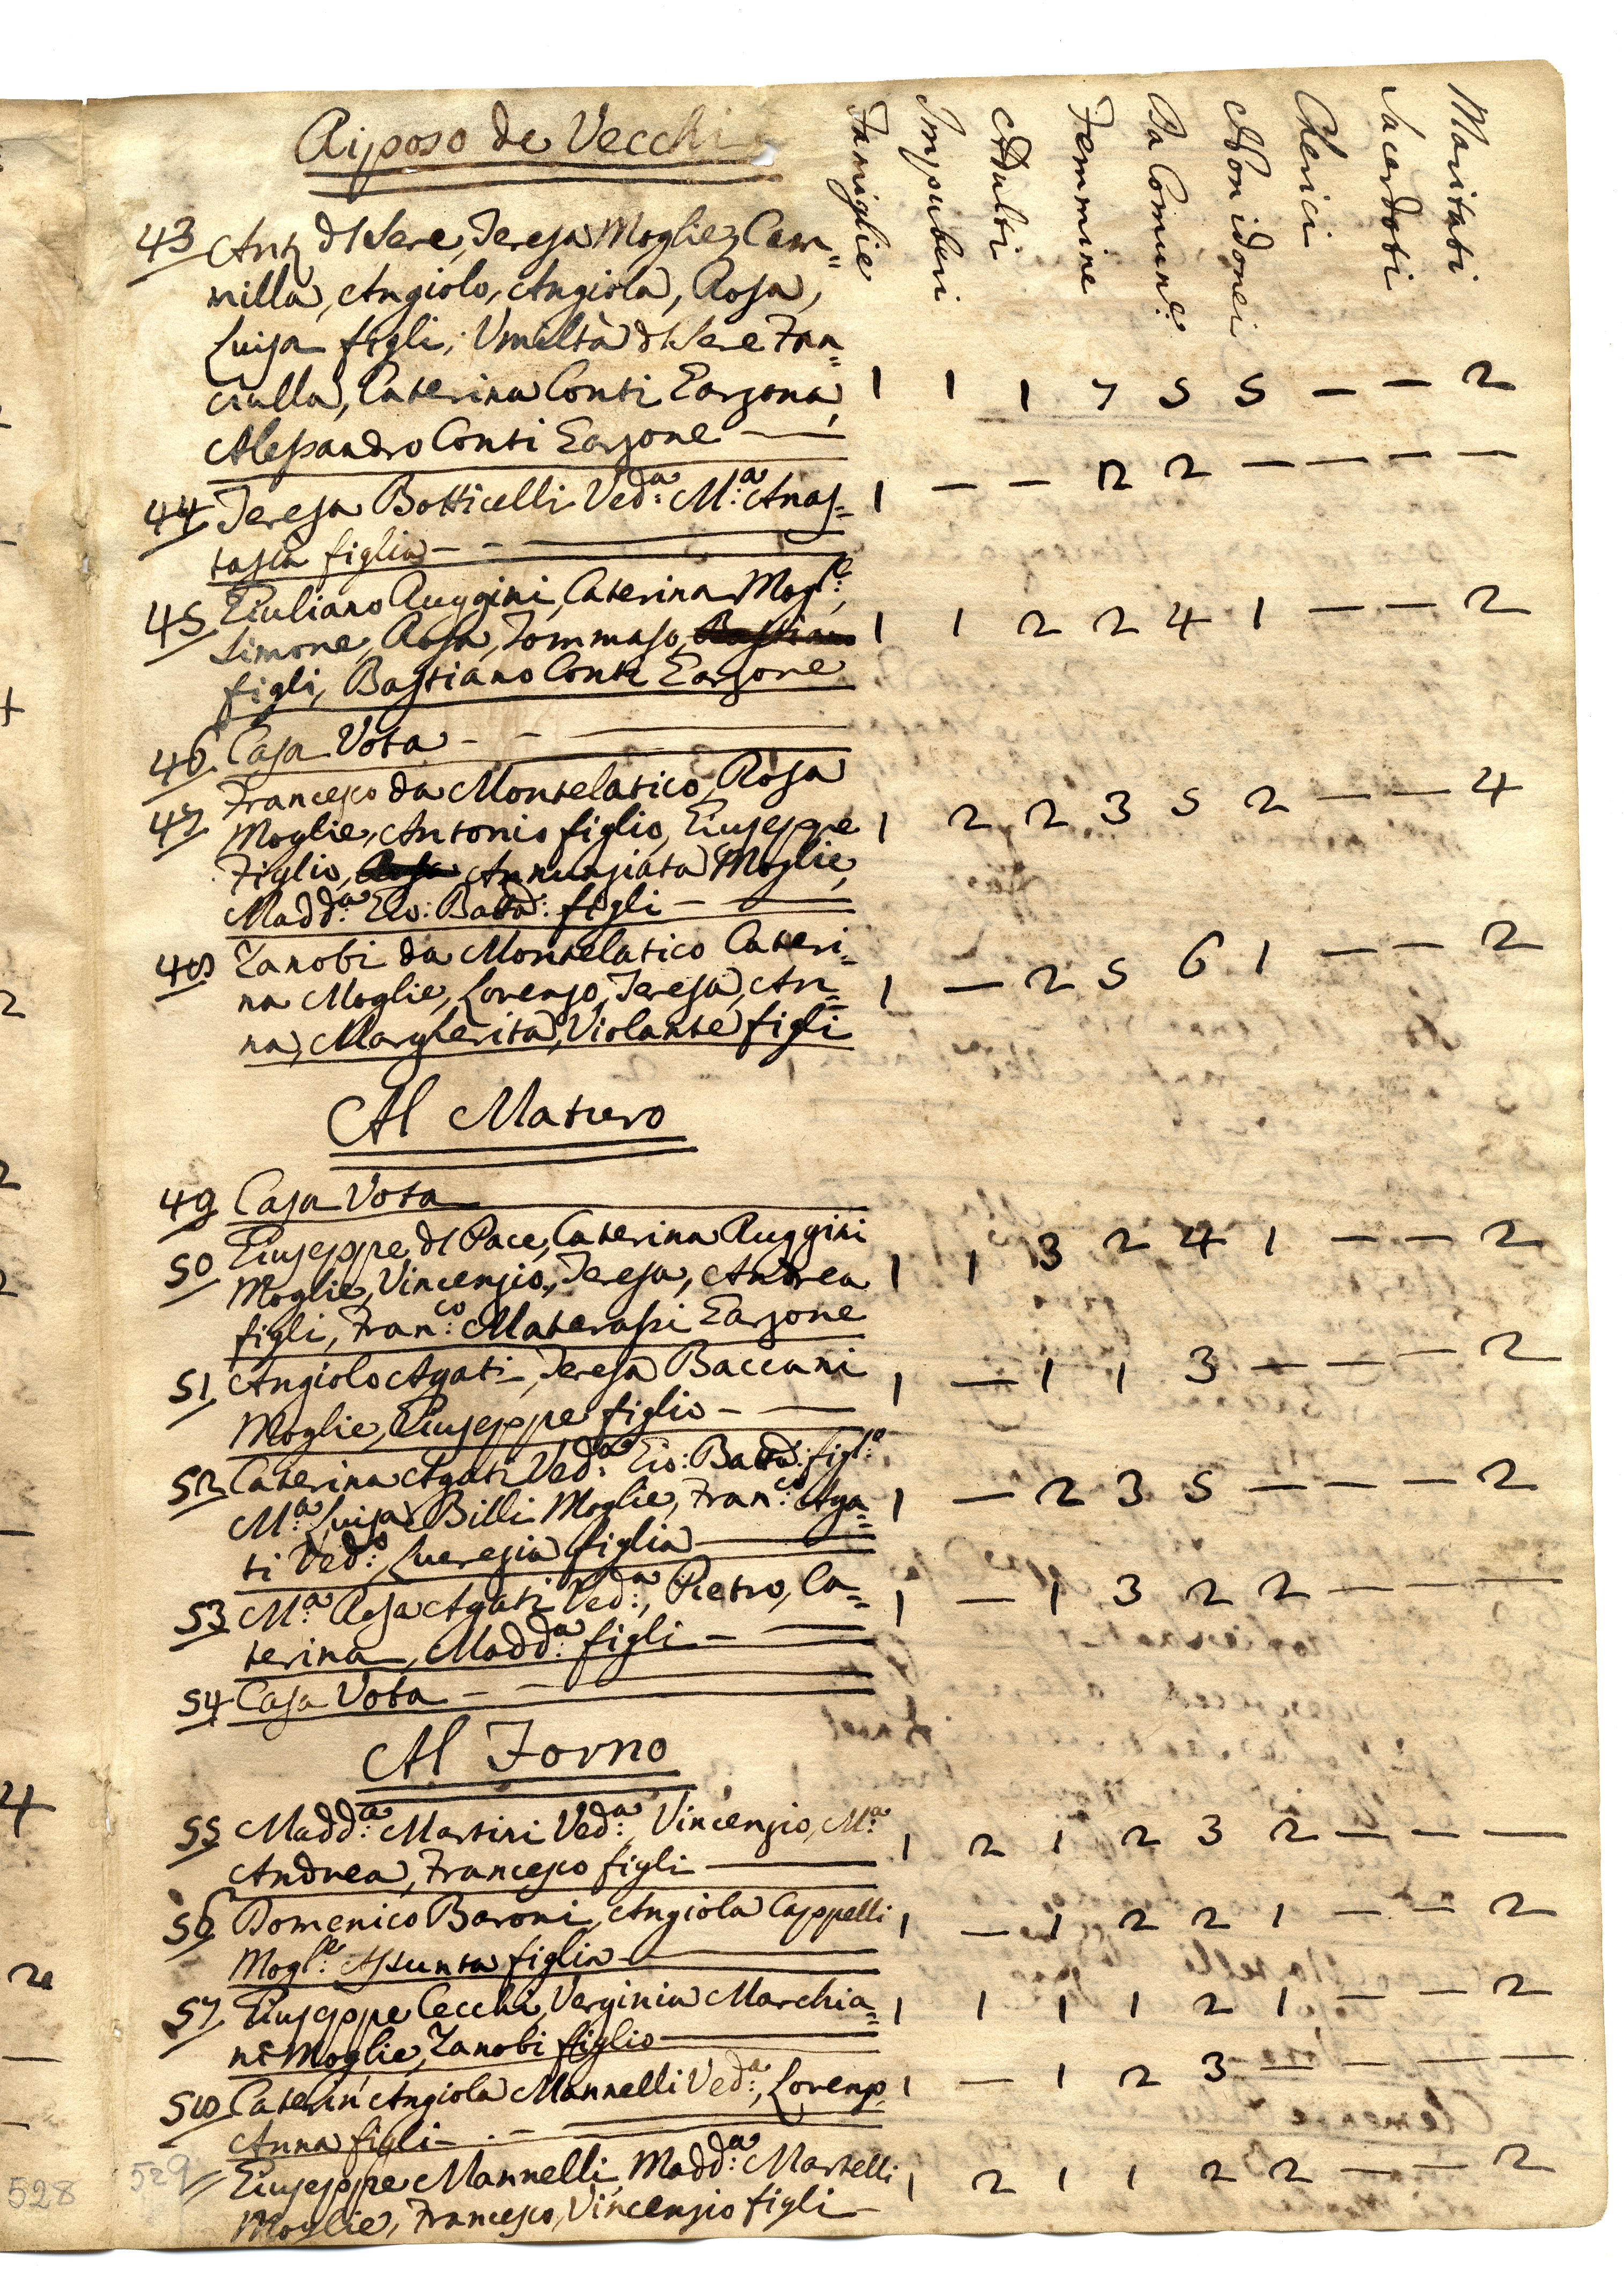 Riposo de Vecchi
Famiglie Impuberi Adulti Femmine Da Comun.e Non idonei Cherici Sacerdoti Maritati
43 Ant. dl Sere, Teresa Moglie, Cam=
milla, Angiolo, Angiola, Rosa,
Luisa figli, Umiltà dl Sere Fan=
ciulla, Caterina Conti Garzona, 1 1 1 7 5 5 — — 2
Alessandro Conti Garzone —
44 Teresa Botticelli Ved:a M:a Anas= 1 — — 2 2 — — — —
tasia figlia — - —
45 Giuliano Ruggini, Caterina Mogl:e,
Simone, Rosa, Tommaso, Bastiano 1 1 2 2 4 1 — — 2
figli, Bastiano Conti Garzone
46 Casa Vota - - —
47 Francesco da Montelatico, Rosa
Moglie, Antonio figlio, Giuseppe 1 2 2 3 5 2 — — 4
Figlio, Rosa Annunziata Moglie,
Madd:a Gio: Batta: figli — —
48 Zanobi da Montelatico Cateri=
na Moglie, Lorenzo, Teresa, An= 1 — 2 5 6 1 — — 2
na, Margherita, Violante figli
Al Maturo
49 Casa Vota
50 Giuseppe dl Pace, Caterina Ruggini
Moglie, Vincenzio, Teresa, Andrea 1 1 3 2 4 1 — — 2
figli, Fran:co Materassi Garzone
51 Angiolo Agati, Teresa Baccani 1 — 1 1 3 — — — 2
Moglie, Giuseppe figlio - —
52 Caterina Agati Ved:a Gio: Batta: figl:o
M:a Luisa Billi Moglie, Fran:co Aga= 1 — 2 3 5 — — — 2
ti Ved:o, Lucrezia figlia —
53 M:a Rosa Agati Ved:a, Pietro, Ca= 1 — 1 3 2 2 — — —
terina, Madd:a figli - —
54 Casa Vota - - —
Al Forno
55 Madd:a Martini Ved:a, Vincenzio, M:a 1 2 1 2 3 2 — — —
Andrea, Francesco figli —
56 Domenico Baroni, Angiola Cappelli 1 — 1 2 2 1 — — 2
Mogl:e Assunta figlia —
57 Giuseppe Cecchi, Verginia Marchia= 1 1 1 1 2 1 — — 2
ni Moglie, Zanobi figlio —
58 Caterin' Angiola Mannelli Ved:a, Lorenzo, 1 — 1 2 3 — — — —
Anna figli - . - —
Giuseppe Mannelli, Madd:a Martelli 1 2 1 1 2 2 — — 2
Moglie, Francesco, Vincenzio figli —
528
529